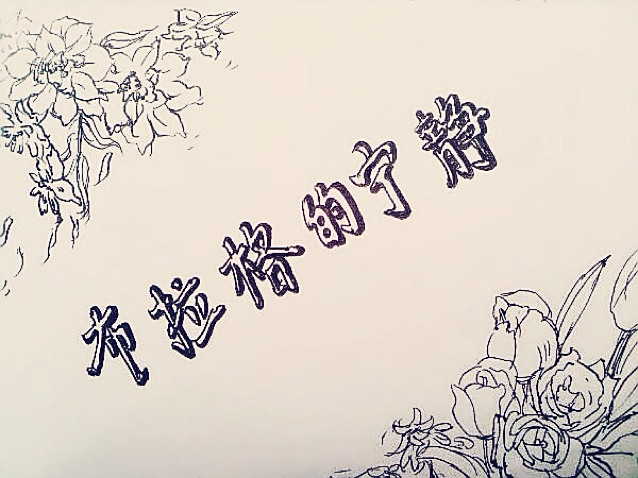 布拉格的宁静